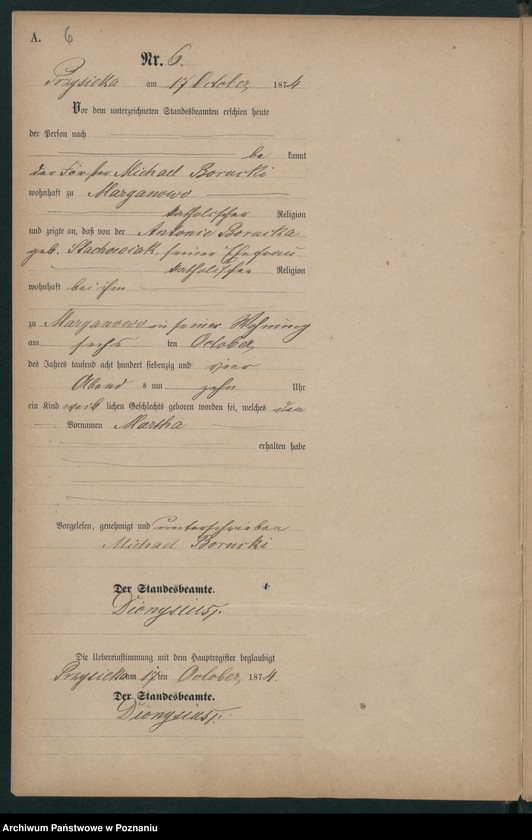 A. 6
Nr. 6.
Przysieka am 17 October 1874
Vor dem unterzeichneten Standesbeamten erschien heute
der Person nach
be kannt
der Förster Michael Borucki
wohnhaft zu Marganowo
katholischer Religion
und zeigte an, daß von der Antonie Borucka
geb. Stachowiak, seiner Ehefrau
katholischer Religion
wohnhaft bei ihm
zu Marganowo in seiner Wohnung
am sechs ten October
des Jahres tausend acht hundert siebenzig und vier
Abend s um zehn Uhr
ein Kind weib lichen Geschlechts geboren worden sei, welches den
Vornamen Martha
erhalten habe
Vorgelesen, genehmigt und unterschrieben
Michael Borucki
Der Standesbeamte.
Die Uebereinstimmung mit dem Hauptregister beglaubigt
Przysieka am 17ten October 1874.
Der Standesbeamte.
Archiwum Państwowe w Poznaniu